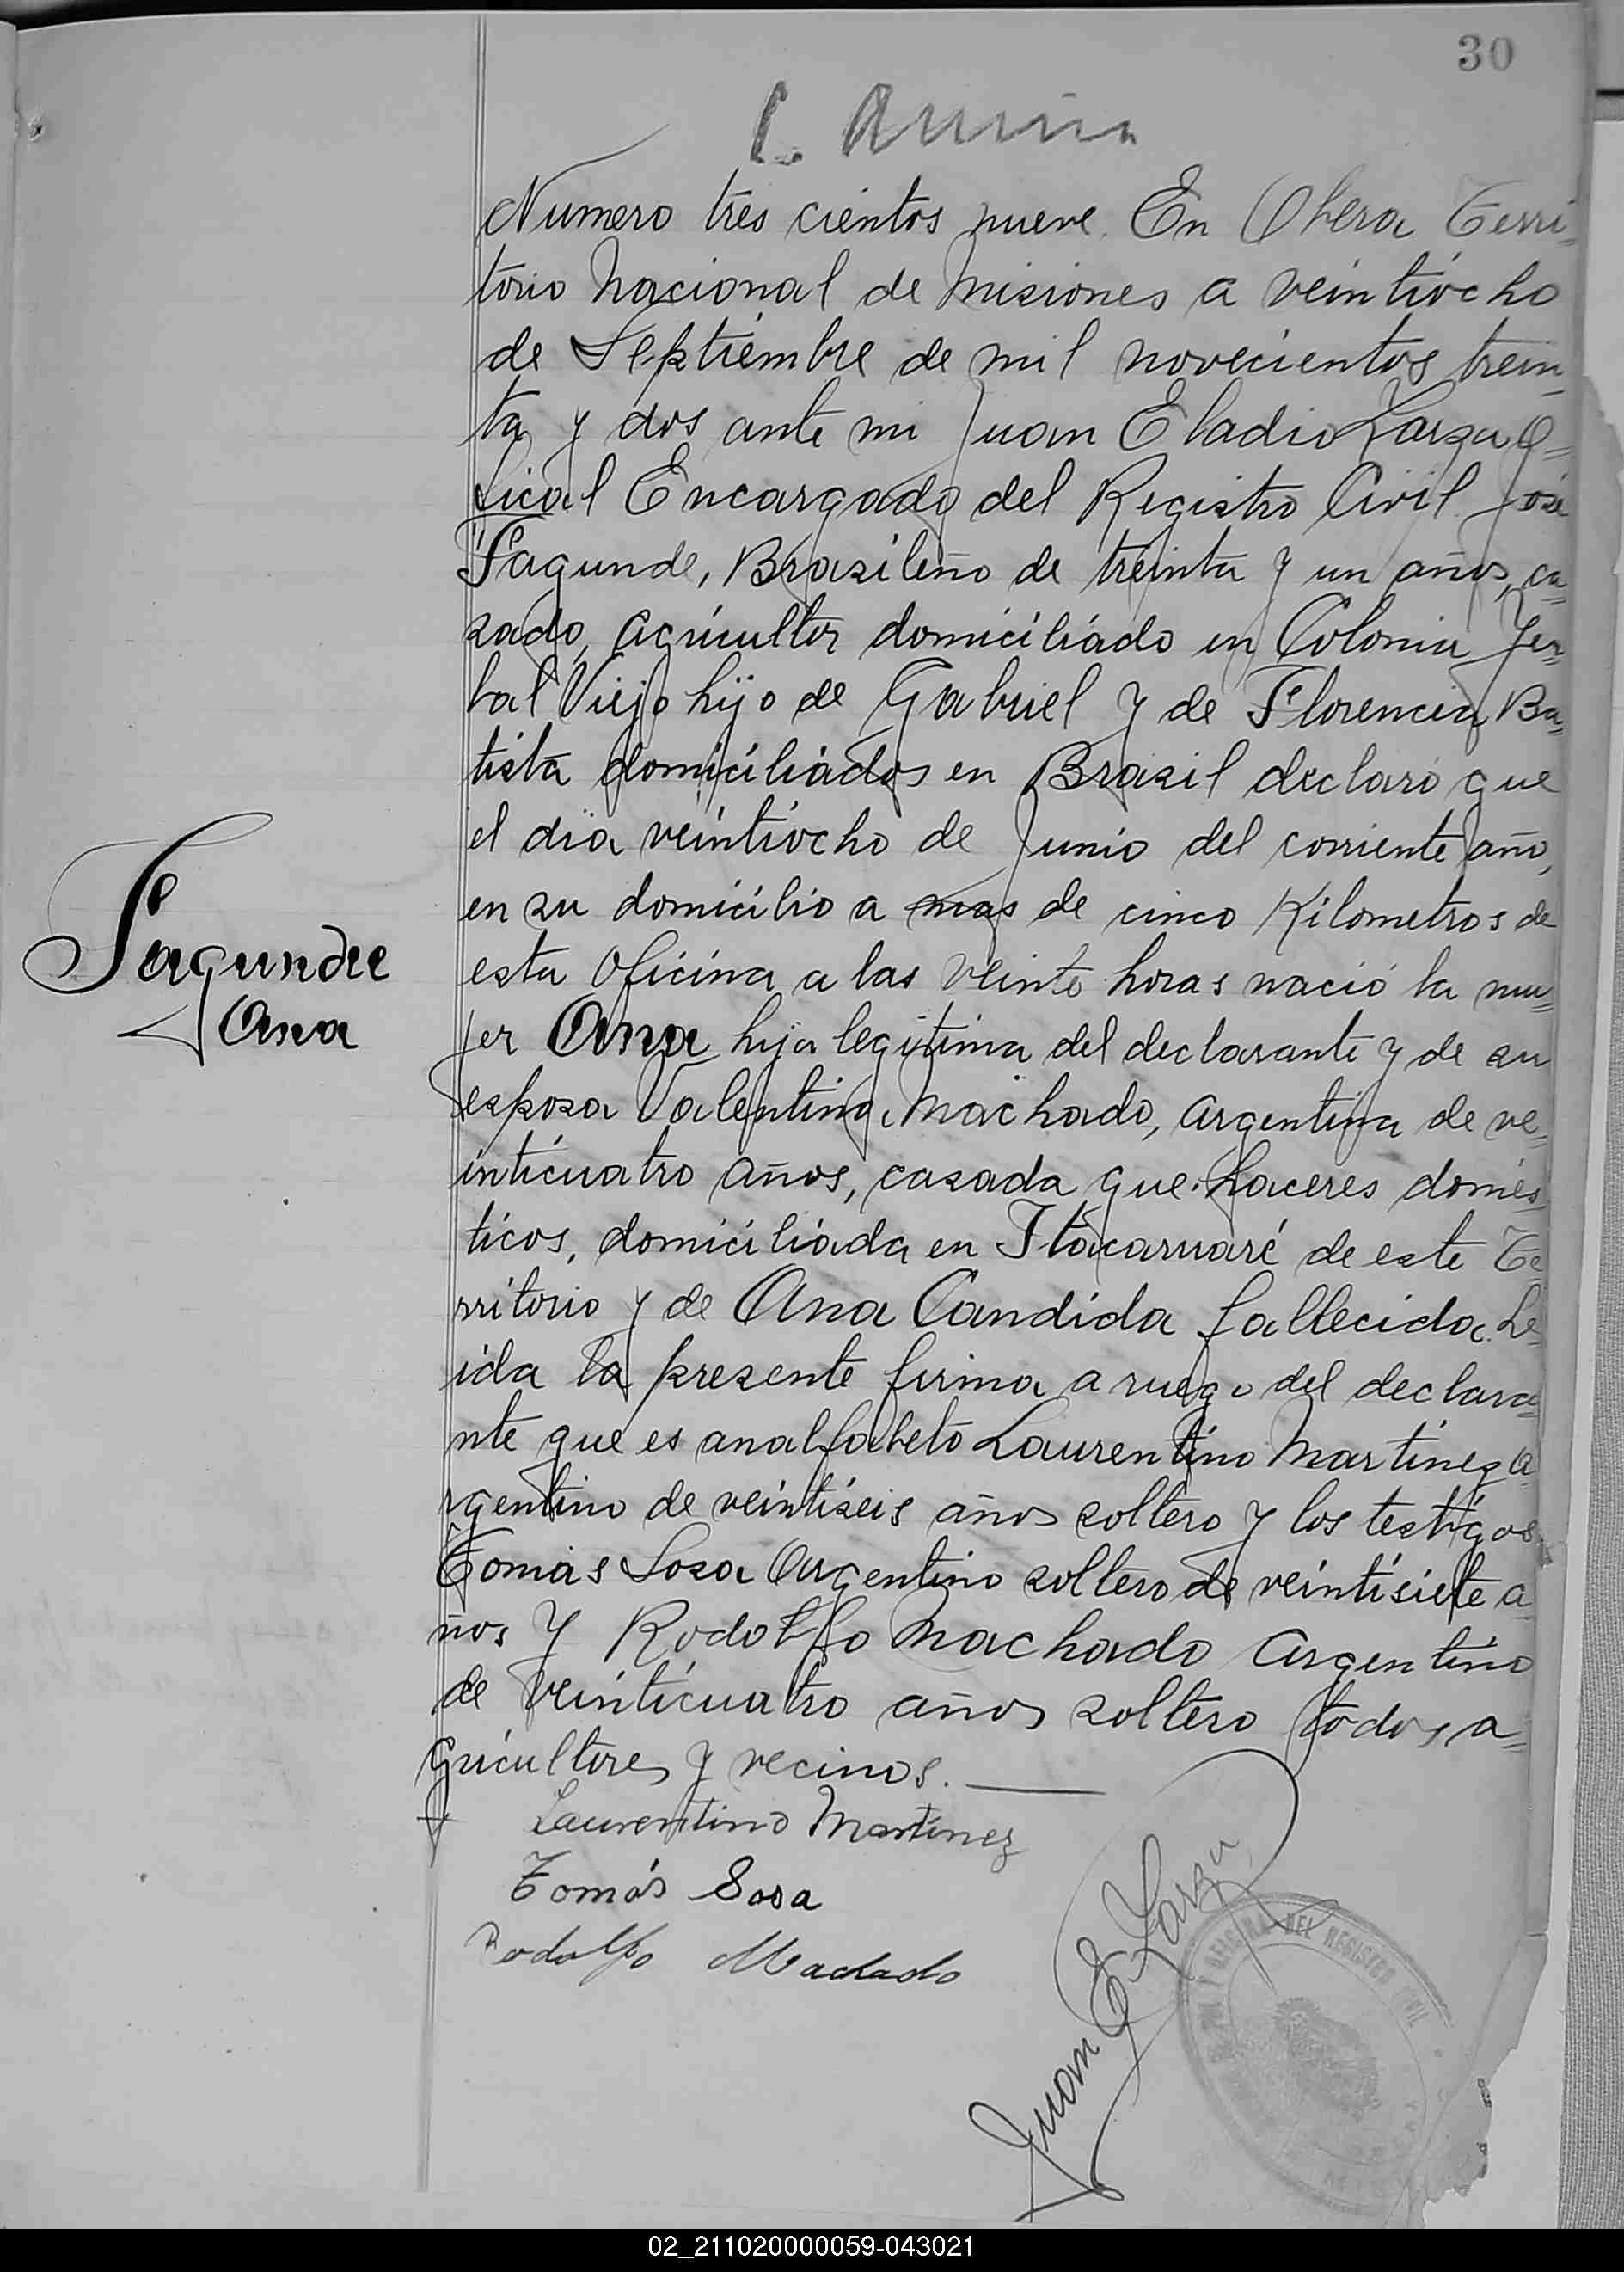 30
Numero tres cientos nueve. En Obera Terri=
torio Nacional de Misiones a veintiocho
de Septiembre de mil novecientos trein=
ta y dos ante mi Juan Eladio Larza O=
ficial Encargado del Registro Civil José
Fagunde, Brazileño de treinta y un años, ca=
zado, agricultor domiciliado en Colonia Yer=
bal Viejo hijo de Gabriel y de Florencia Ba=
tista domiciliados en Brazil declaró que
el dia veintiocho de Junio del corriente año,
en su domicilio a mas de cinco Kilometros de
esta Oficina a las veinte horas nació la mu=
Fagunde
jer Ana hija legitima del declarante y de su
Ana
esposa Valentina Machado, argentina de ve=
inticuatro años, casada que haceres domes=
ticos, domiciliada en Itacaruaré de este Te=
rritorio y de Ana Candida fallecida. Le=
ida la presente firma a ruego del declara=
nte que es analfabeto Laurentino Martinez a=
rgentino de veintiseis años soltero y los testigos
Tomás Sosa Argentino soltero de veintisiete a=
ños y Rodolfo Machado Argentino
de veinticuatro años soltero todos a=
gricultores y vecinos.
Laurentino Martinez
Tomás Sosa
Rodolfo Machado
Juan E Larza
DEL REGISTRO CIVIL
02_211020000059-043021